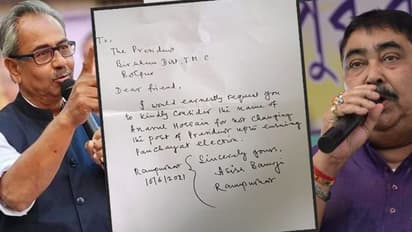 To,
The President
Birbhum Dist. T.M.C
Bolpur
Dear friend,
I would earnestly request you
to kindly consider the name of
Anarul Hossain for not changing
the post of President upto ensuing
Panchayat election.
Rampurhat
10/6/2021
Sincerely yours,
Asish Banerji
Rampurhat